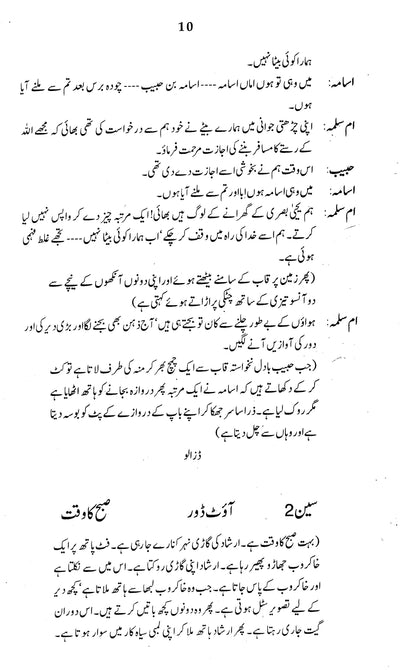 10
ہمارا کوئی بیٹا نہیں۔
اسامہ: میں وہی تو ہوں اماں اسامہ ---- اسامہ بن حبیب ---- چودہ برس بعد تم سے ملنے آیا
ہوں۔
ام سلمہ: اپنی چڑھتی جوانی میں ہمارے بیٹے نے خود ہم سے درخواست کی تھی بھائی کہ مجھے اللہ
کے رستے کا مسافر بننے کی اجازت مرحمت فرماؤ۔
حبیب: اس وقت ہم نے بخوشی اسے اجازت دے دی تھی۔
اسامہ: میں وہی اسامہ ہوں ابا اور تم سے ملنے آیا ہوں۔
ام سلمہ: ہم یحییٰ بصری کے گھرانے کے لوگ ہیں بھائی! ایک مرتبہ چیز دے کر واپس نہیں لیا
کرتے۔ ہم اسے خدا کی راہ میں وقف کر چکے' اب ہمارا کوئی بیٹا نہیں ---- تجھے غلط فہمی
ہوئی ہے۔
(پھر زمین پر قاب کے سامنے بیٹھتے ہوئے اور اپنی دونوں آنکھوں کے نیچے سے
دو آنسو تیزی کے ساتھ چٹکی پر اڑاتے ہوئے کہتی ہے)
ام سلمہ: ہواؤں کے بے طور چلنے سے کان تو بجتے ہی ہیں' آج ذہن بھی بجنے لگا اور بڑی دیر کی اور
دور کی آوازیں آنے لگیں۔
(جب حبیب بادل نخواستہ قاب سے ایک چمچ بھر کر منہ کی طرف لاتا ہے تو کٹ
کر کے دکھاتے ہیں کہ اسامہ نے ایک مرتبہ پھر دروازہ بجانے کو ہاتھ اٹھایا ہے
مگر روک لیا ہے۔ ذرا سا سر جھکا کر اپنے باپ کے دروازے کے پٹ کو بوسہ دیتا
ہے اور وہاں سے چل دیتا ہے)
ڈزالو
سین 2 آؤٹ ڈور صبح کا وقت
(بہت صبح کا وقت ہے۔ ارشاد کی گاڑی نہر کنارے جا رہی ہے۔ فٹ پاتھ پر ایک
خاکروب جھاڑو پھیر رہا ہے۔ ارشاد اپنی گاڑی روکتا ہے۔ اس میں سے نکلتا ہے
اور خاکروب کے پاس جاتا ہے۔ جب وہ خاکروب لبھا سے ہاتھ ملاتا ہے' کچھ دیر
کے لیے تصویر سٹل ہوتی ہے۔ پھر وہ دونوں کچھ باتیں کرتے ہیں۔ اس دوران
گیت جاری رہتا ہے۔ پھر ارشاد ہاتھ ملا کر اپنی لمبی سیاہ کار میں سوار ہوتا ہے۔